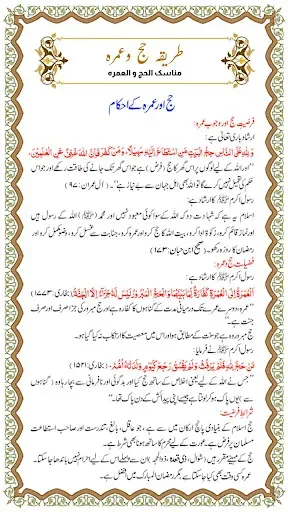 طریقہ حج وعمرہ
مناسک الحج و العمره
حج اور عمرہ کے احکام
فرضیتِ حج اور وجوبِ عمرہ:
ارشاد باری تعالیٰ ہے:
وَلِلّٰهِ عَلَى النَّاسِ حِجُّ الْبَيْتِ مَنِ اسْتَطَاعَ اِلَيْهِ سَبِيْلًا، وَمَنْ كَفَرَ فَاِنَّ اللّٰهَ غَنِىٌّ عَنِ الْعٰلَمِيْنَ،
"اور اللہ کے لیے لوگوں پر اس گھر کا حج (فرض) ہے جو اس گھر تک جانے کی طاقت رکھے اور جو اس
حکم کی تعمیل نہیں کرے گا تو اللہ بھی اہل جہان سے بے نیاز ہے"۔ (آل عمران: ۹۷)
رسول اکرم ﷺ کا ارشاد ہے:
اسلام یہ ہے کہ شہادت دو کہ اللہ کے سوا کوئی معبود نہیں اور محمد (ﷺ) اللہ کے رسول ہیں
اور نماز قائم کرو، زکوٰۃ ادا کرو، بیت اللہ کا حج کرو اور عمرہ کرو، جنابت سے غسل کرو، وضو مکمل کرو اور
رمضان کا روزہ رکھو۔ (صحیح ابن حبان: ۱۷۳)
فضیلتِ حج وعمرہ:
رسول اکرم ﷺ کا ارشاد ہے:
اَلْعُمْرَةُ اِلَى الْعُمْرَةِ كَفَّارَةٌ لِّمَا بَيْنَهُمَا وَالْحَجُّ الْمَبْرُوْرُ لَيْسَ لَهُ جَزَاءٌ اِلَّا الْجَنَّةُ، (بخاری: ۱۷۷۳)
"عمرہ دوسرے عمرے تک درمیانی مدت کے گناہوں کا کفارہ ہے اور حج مبرور کی جزا صرف اور صرف
جنت ہے۔"
حج مبرور وہ ہے جو سنت کے مطابق ہو اور اس میں معصیت کا ارتکاب نہ کیا گیا ہو۔
رسول اکرم ﷺ نے فرمایا:
مَنْ حَجَّ لِلّٰهِ فَلَمْ يَرْفُثْ وَلَمْ يَفْسُقْ رَجَعَ كَيَوْمِ وَلَدَتْهُ اُمُّهُ، (بخاری: ۱۵۲۱)
"جس نے اللہ کے لیے یعنی اخلاص کے ساتھ حج کیا اور بدگوئی اور نافرمانی سے بچا رہا وہ (گناہوں
سے) یوں پاک ہو کر لوٹتا ہے جیسے اپنی پیدائش کے دن پاک تھا"۔
شرائطِ فرضیت:
حج اسلام کے بنیادی پانچ ارکان میں سے ہے، جو عاقل، بالغ، تندرست اور صاحب استطاعت
مسلمان پر فرض ہے۔ عورت کے لیے محرم کا ساتھ ہونا بھی شرط ہے۔
حج کے مہینے مقرر ہیں (شوال، ذی قعدہ، ذوالحجہ) ان سے پہلے اس کے لیے احرام نہیں باندھا جا سکتا۔
عمرہ کسی وقت بھی کیا جا سکتا ہے مگر رمضان المبارک میں افضل ہے۔